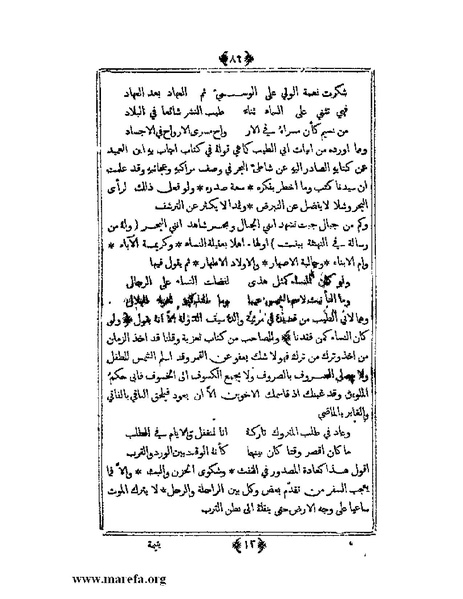 ﴿٨٩﴾
شكرت نعمة الولي على الوسمي ثم العهاد بعد العهاد
فهي تثني على السماء ثناء طيب النشر شائعا في البلاد
من نسيم كأن مسراه في الار واح مسرى الارواح في الاجساد
ومما اورده من ابيات ابي الطيب كما هي قوله في كتاب اجاب به ابن العميد
عن كتابه الصادر اليه عن شاطئ البحر في وصف مراكبه وعجائبه وقد علمت
ان سيدنا كتب وما اخطر بفكره * سعة صدره * ولو فعل ذلك لرأى
البحر وشلا لا يفضل عن التبرض * وثمدا لا يكثر عن الترشف
وكم من جبال جبت تشهد انني الجبال وبحر شاهد انني البحر ( وله من
رسالة في التهنئة ببنت ) اولها. اهلا بعقيلة النساء * وكريمة الآباء *
وام الابناء * وجالبة الاصهار * والاولاد الاطهار * ثم يقول فيها
ولو كان النساء كمثل هذى لفضلت النساء على الرجال
وما التأنيث لاسم الشمس عيب
كان النساء كمن فقدنا * وللصاحب من كتاب تعزية وقلنا قد اخذ الزمان
من اخذ وترك من ترك فهو لا شك يعفو عن القمر وقد اسلم الشمس للطفل
ولا يصل الصروف بالصروف ولا يجمع الكسوف الى الخسوف فابى حكم
الملوين وقد غبنك اذ قاسمك الاخوين الا ان يعود فيلحق الباقي بالفاني
والغابر بالماضي
وعاد في طلب المتروك تاركه انا لنغفل والايام في الطلب
ما كان اقصر وقتا كان بينها كأنه الوقت بين الورد والقرب
اقول هذا كعادة المصدور في النفث * وشكوى الحزن والبث * والا فما
يعجب السفر من تقدم بعض وكل بين الراحلة والرحل * لا يترك الموت
ساعيا على وجه الارض حتى ينقله الى بطن الترب
﴿١٢﴾ يتيمة
www.marefa.org